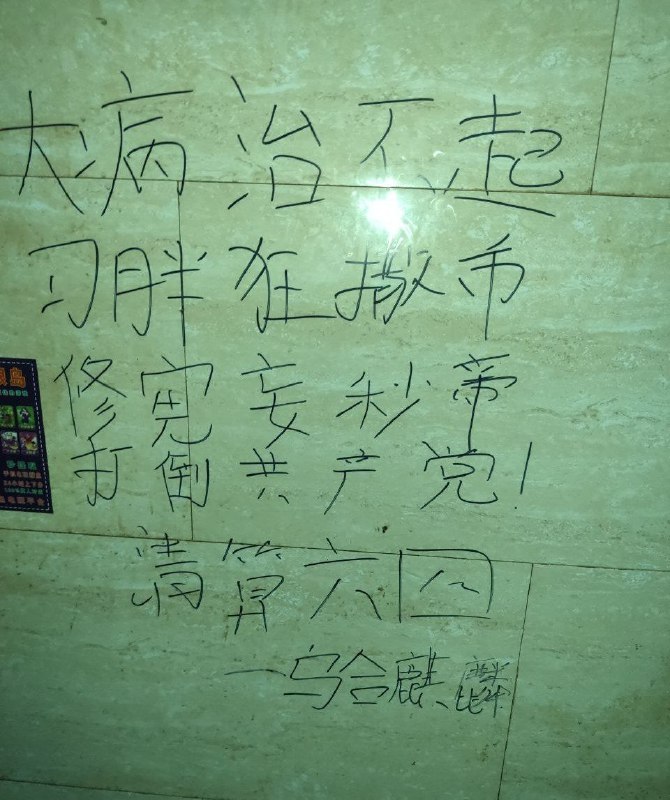 大病治不起
习胖狂撒币
修宪妄秒帝
打倒共产党!
清算六四
—乌合麒麟